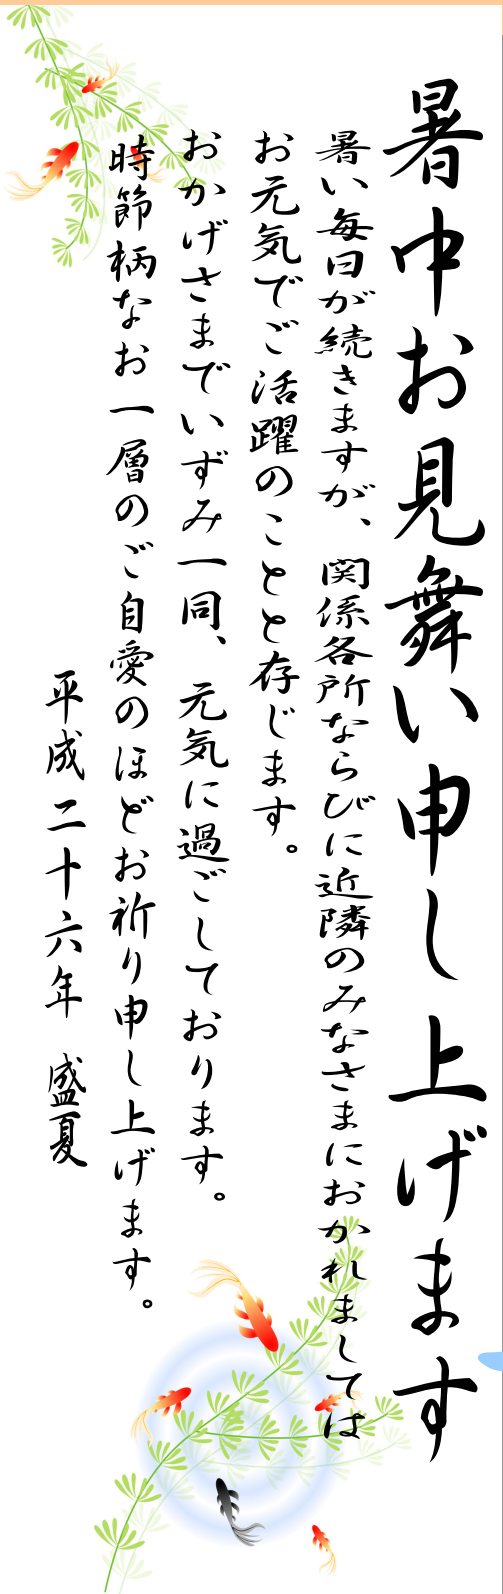 暑中お見舞い申し上げます
暑い毎日が続きますが、関係各所ならびに近隣のみなさまにおかれましては
お元気でご活躍のことと存じます。
おかげさまでいずみ一同、元気に過ごしております。
時節柄なお一層のご自愛のほどお祈り申し上げます。
平成二十六年　盛夏